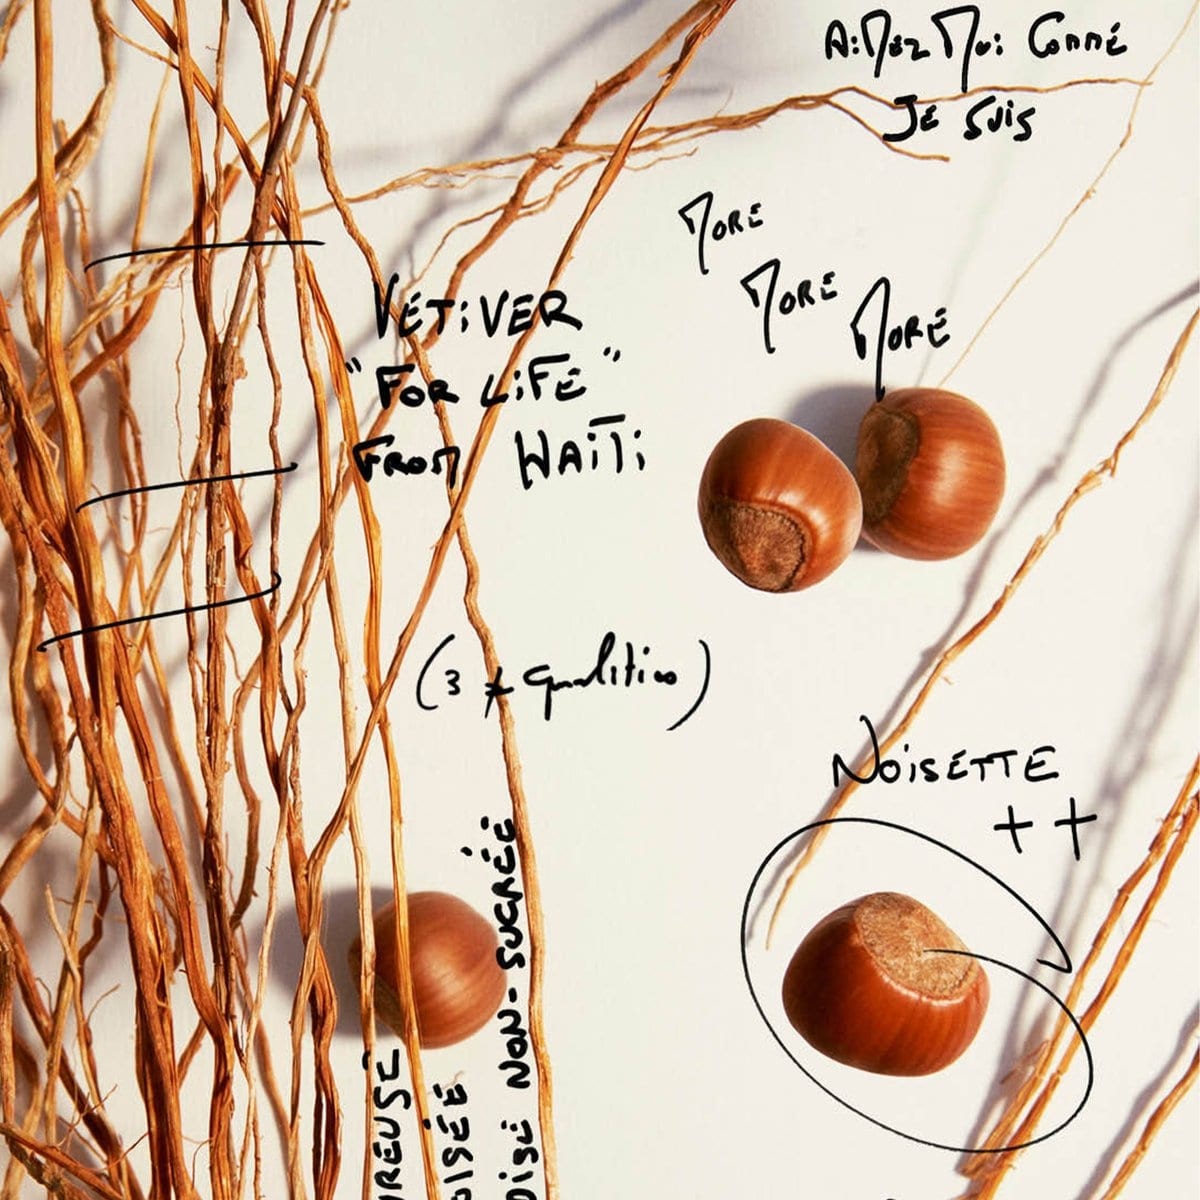 AiMEZ MOi COMME
JE SUiS
MORE
MORE
MORE
VÉTiVER
"FOR LiFE"
FROM HAÏTi
(3 ≠ qualities)
NOiSETTE
++
NON-SUCRÉE